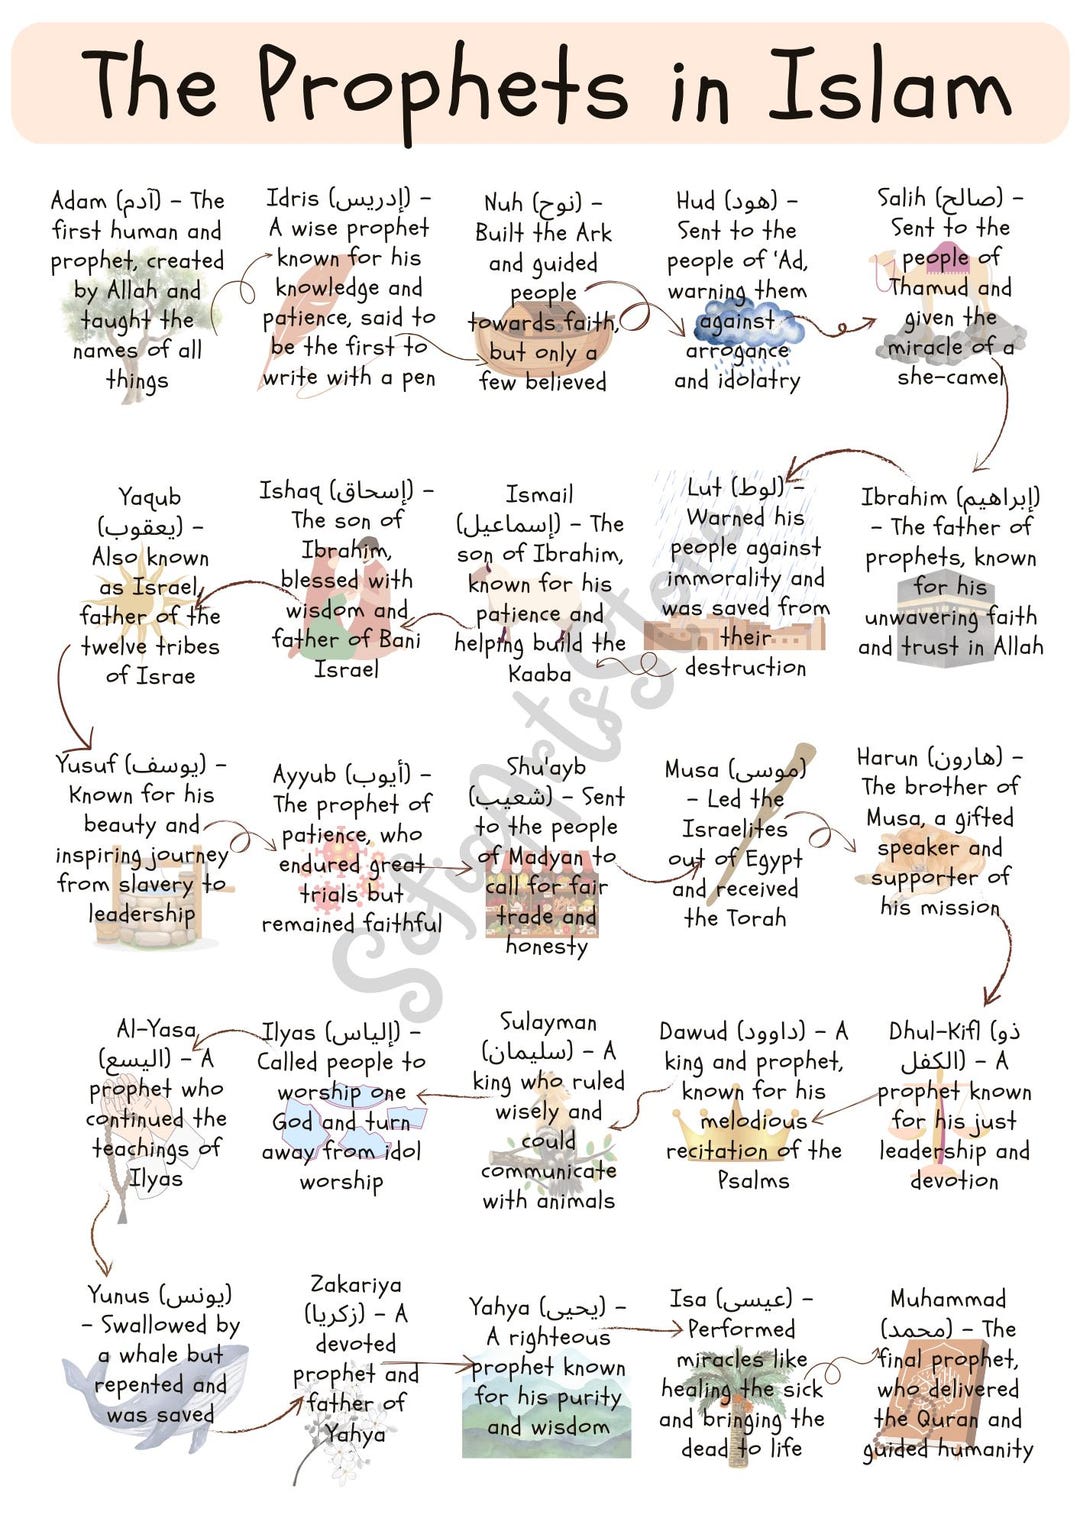 The Prophets in Islam
Adam (آدم) – The
first human and
prophet, created
by Allah and
taught the
names of all
things
Idris (إدريس) –
A wise prophet
known for his
knowledge and
patience, said to
be the first to
write with a pen
Nuh (نوح) –
Built the Ark
and guided
people
towards faith,
but only a
few believed
Hud (هود) –
Sent to the
people of 'Ad,
warning them
against
arrogance
and idolatry
Salih (صالح) –
Sent to the
people of
Thamud and
given the
miracle of a
she-camel
Ibrahim (إبراهيم)
– The father of
prophets, known
for his
unwavering faith
and trust in Allah
Lut (لوط) –
Warned his
people against
immorality and
was saved from
their
destruction
Ismail
(إسماعيل) – The
son of Ibrahim,
known for his
patience and
helping build the
Kaaba
Ishaq (إسحاق) –
The son of
Ibrahim,
blessed with
wisdom and
father of Bani
Israel
Yaqub
(يعقوب) –
Also known
as Israel,
father of the
twelve tribes
of Israe
Yusuf (يوسف) –
Known for his
beauty and
inspiring journey
from slavery to
leadership
Ayyub (أيوب) –
The prophet of
patience, who
endured great
trials but
remained faithful
Shu'ayb
(شعيب) – Sent
to the people
of Madyan to
call for fair
trade and
honesty
Musa (موسى)
– Led the
Israelites
out of Egypt
and received
the Torah
Harun (هارون) –
The brother of
Musa, a gifted
speaker and
supporter of
his mission
Dhul-Kifl (ذو
الكفل) – A
prophet known
for his just
leadership and
devotion
Dawud (داوود) – A
king and prophet,
known for his
melodious
recitation of the
Psalms
Sulayman
(سليمان) – A
king who ruled
wisely and
could
communicate
with animals
Ilyas (إلياس) –
Called people to
worship one
God and turn
away from idol
worship
Al-Yasa
(اليسع) – A
prophet who
continued the
teachings of
Ilyas
Yunus (يونس)
– Swallowed by
a whale but
repented and
was saved
Zakariya
(زكريا) – A
devoted
prophet and
father of
Yahya
Yahya (يحيى) –
A righteous
prophet known
for his purity
and wisdom
Isa (عيسى) –
Performed
miracles like
healing the sick
and bringing the
dead to life
Muhammad
(محمد) – The
final prophet,
who delivered
the Quran and
guided humanity
SofiqArtsStore